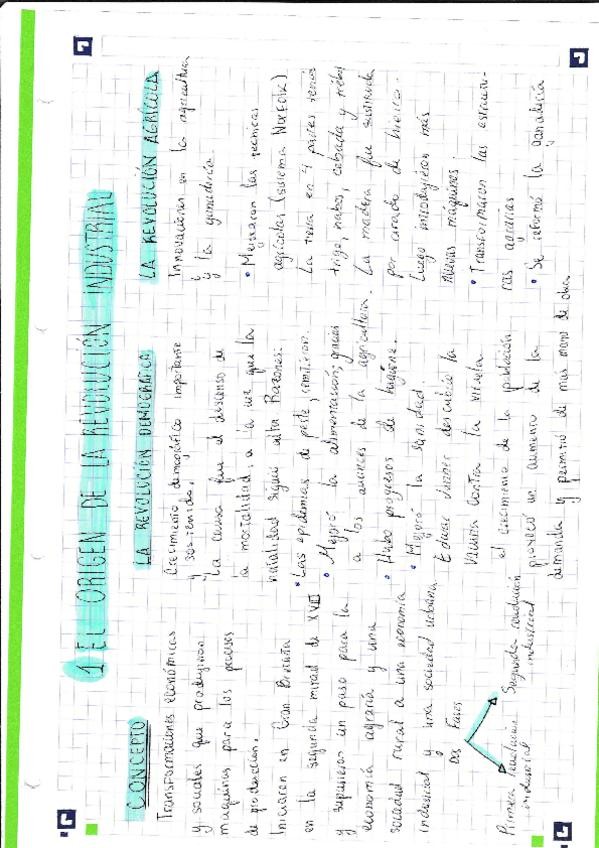 1. EL ORIGEN DE LA REVOLUCIÓN INDUSTRIAL
CONCEPTO
Transformaciones económicas
y sociales que produjeron
maquinas para los procesos
de producción.
Iniciaron en Gran Bretaña
en la segunda mitad de XVIII
y supusieron un paso para la
economía agraria y una
sociedad rural a una economía
industrial y una sociedad urbana
Dos Fases
Primera revolución
industrial
Segunda revolución
industrial
LA REVOLUCIÓN DEMOGRÁFICA
Crecimiento demográfico importante
y sostenido.
La causa fue el descenso de
la mortalidad, a la vez que la
natalidad siguió alta Razones:
• Las epidemias de peste,
• Mejoró la alimentación gracias
a los avances de la agricultura.
• Hubo progresos de higiene.
• Mejoró la sanidad.
Edward Jenner descubrió la
vacuna contra la viruela
el crecimiento de la población
provocó un aumento de la
demanda y permitió de más mano de obra.
LA REVOLUCIÓN AGRÍCOLA
Innovaciones en la agricultura
y la ganadería.
• Mejoraron las tecnicas
agrícolas (sistema Norfolk)
La tierra en 4 partes
trigo, nabos, cebada y trébol
La madera fue sustituida
por arado de hierro.
Luego introdujeron más
nuevas máquinas.
• Transformaron las estructu-
ras agrarias
• Se informó la ganadería